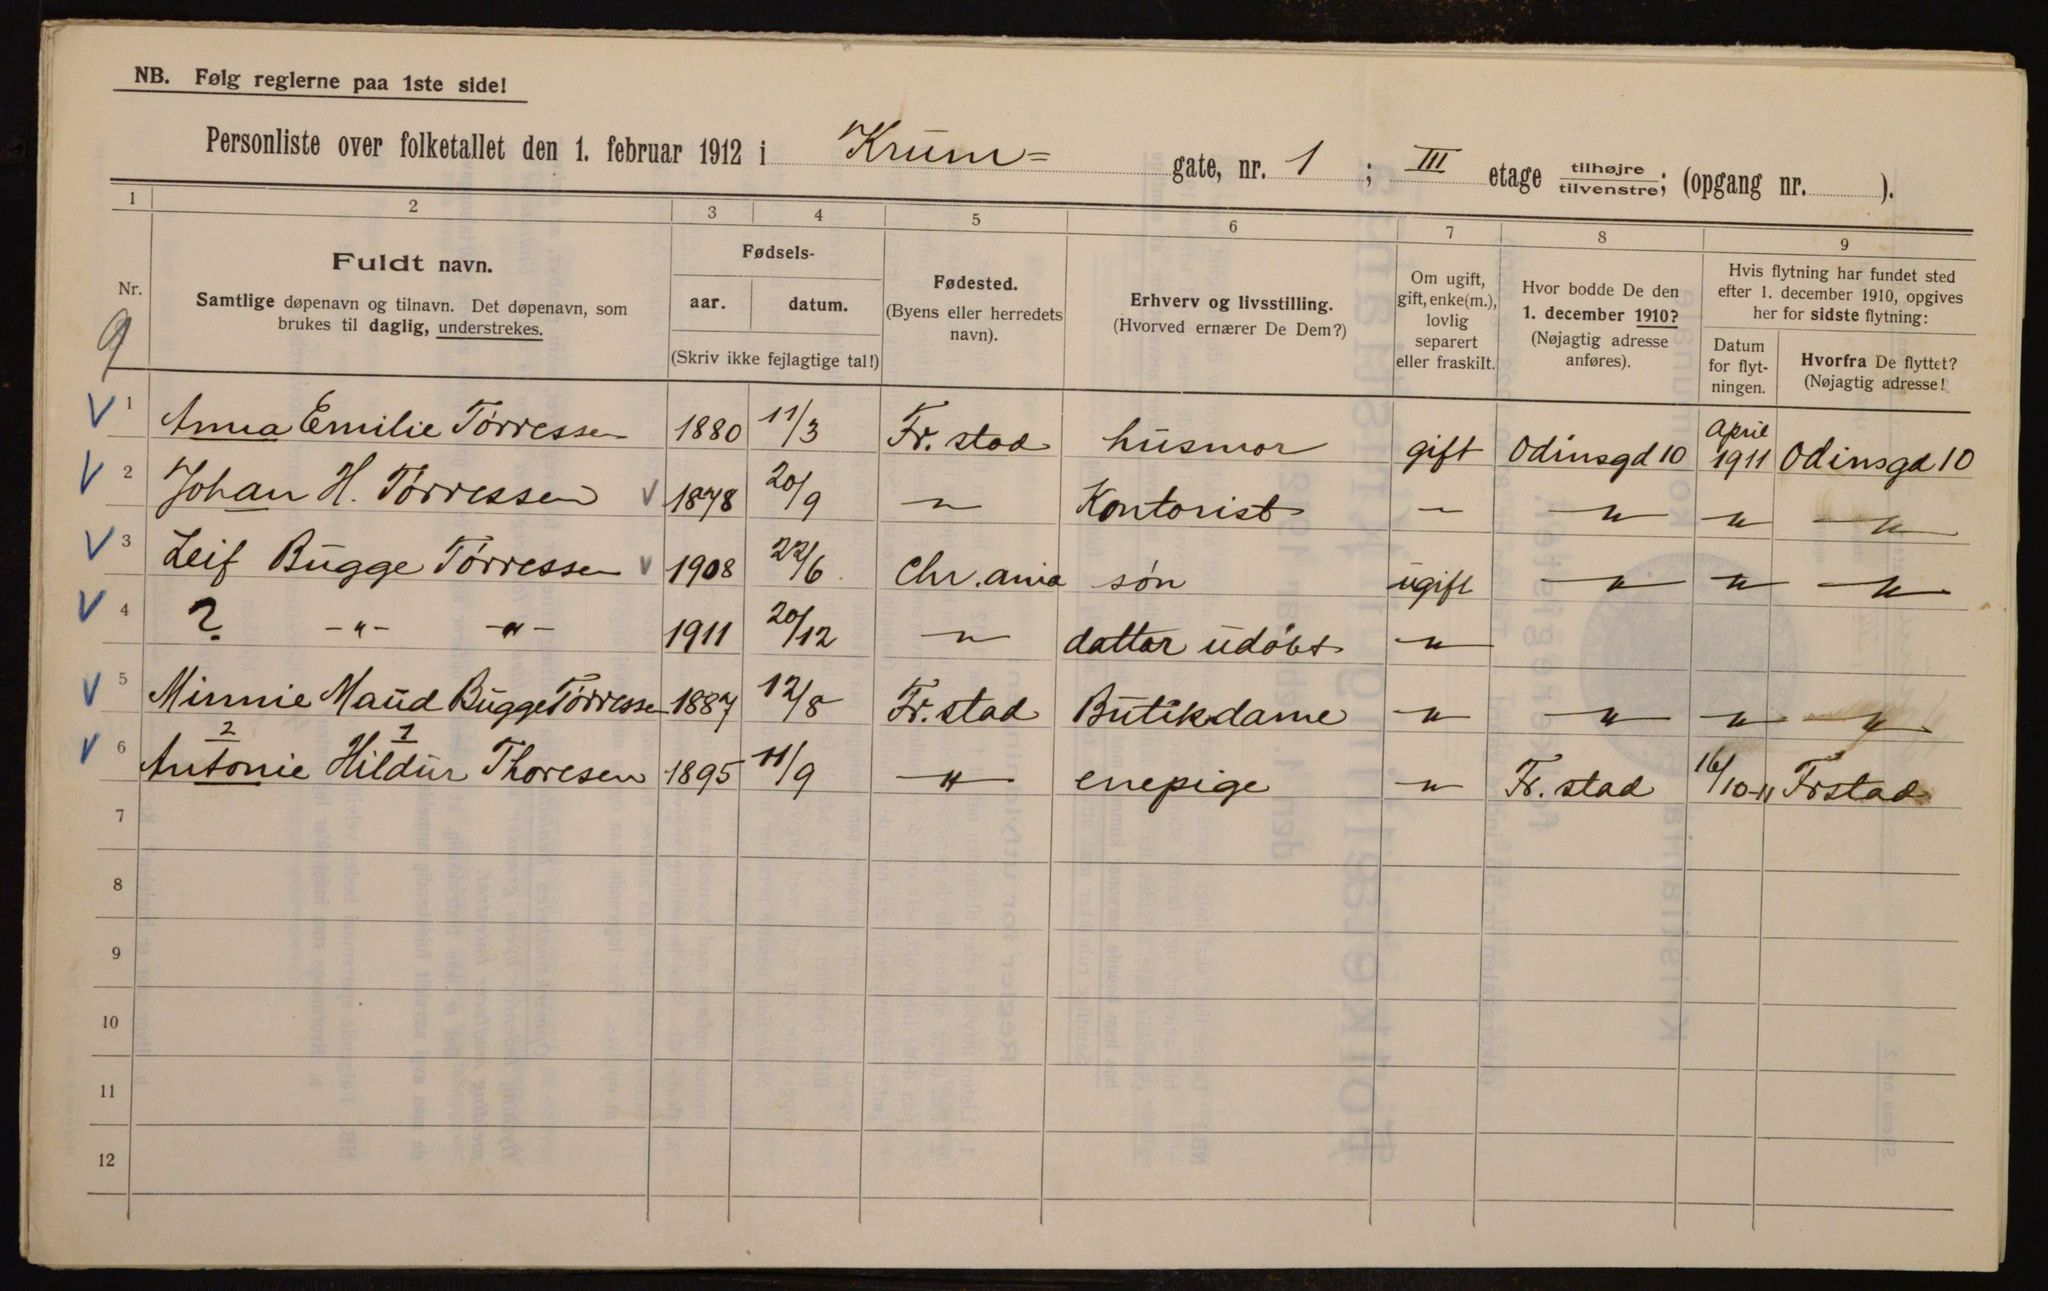 NB. Følg reglerne paa 1ste side!
Personliste over folketallet den 1. februar 1912 i Krum= gate, nr. 1; III etage tilhøjre/tilvenstre; (opgang nr. ).
1 2 3 4 5 6 7 8 9
Nr.
Fuldt navn.
Samtlige døpenavn og tilnavn. Det døpenavn, som
brukes til daglig, understrekes.
Fødsels-
aar. datum.
(Skriv ikke fejlagtige tal!)
Fødested.
(Byens eller herredets
navn).
Erhverv og livsstilling.
(Hvorved ernærer De Dem?)
Om ugift,
gift, enke(m.),
lovlig
separert
eller fraskilt.
Hvor bodde De den
1. december 1910?
(Nøjagtig adresse
anføres).
Hvis flytning har fundet sted
efter 1. december 1910, opgives
her for sidste flytning:
Datum
for flyt-
ningen.
Hvorfra De flyttet?
(Nøjagtig adresse!)
9
V 1 Anna Emilie Tørressen 1880 11/3 Fr. stad husmor gift Odinsgd 10 April 1911 Odinsgd 10
V 2 Johan H. Tørressen V 1878 20/9 " Kontorist " " " "
V 3 Leif Bugge Tørressen V 1908 22/6 Chr. ania søn ugift " " "
V 4 ? -"- -"- 1911 20/12 " datter udøbt "
V 5 Minnie Maud Bugge Tørressen 1887 12/8 Fr. stad Butikdame " " " "
2 1
V 6 Antonie Hildur Thoresen 1895 11/9 " enepige " Fr. stad 16/10-11 Frstad
7
8
9
10
11
12